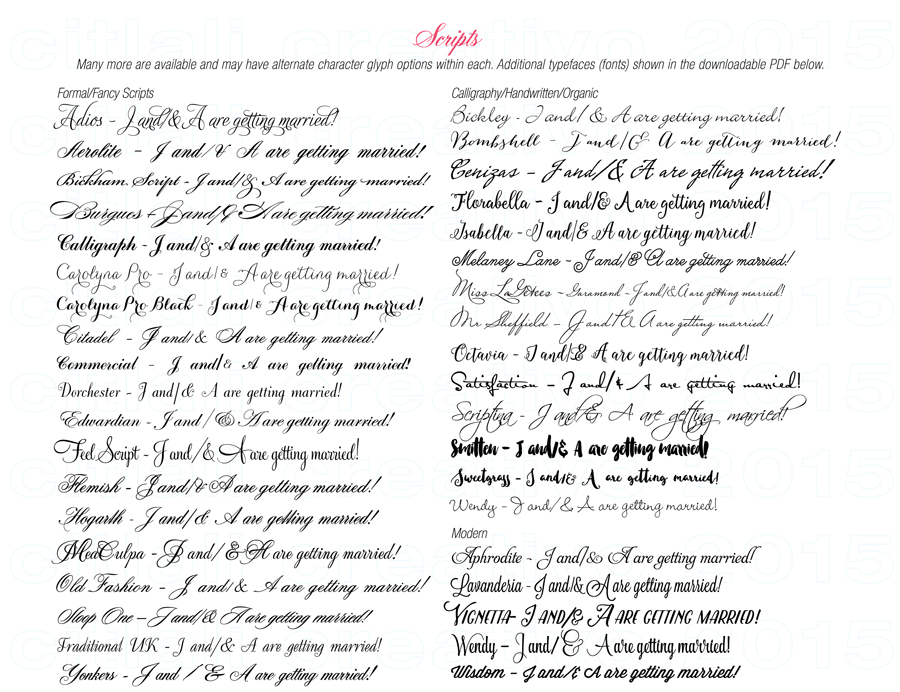 citlali creativo 2015
Scripts
Many more are available and may have alternate character glyph options within each. Additional typefaces (fonts) shown in the downloadable PDF below.
Formal/Fancy Scripts
Adios - J and/& A are getting married!
Aerolite - J and/& A are getting married!
Bickham Script - J and/& A are getting married!
Burgues - J and/& A are getting married!
Calligraph - J and/& A are getting married!
Carolyna Pro - J and/& A are getting married!
Carolyna Pro Black - J and/& A are getting married!
Citadel - J and/& A are getting married!
Commercial - J and/& A are getting married!
Dorchester - J and/& A are getting married!
Edwardian - J and / & A are getting married!
Feel Script - J and/& A are getting married!
Flemish - J and/& A are getting married!
Hogarth - J and/& A are getting married!
MeaCulpa - J and/ & A are getting married!
Old Fashion - J and/& A are getting married!
Sloop One - J and/& A are getting married!
Traditional UK - J and/& A are getting married!
Yonkers - J and / & A are getting married!
Calligraphy/Handwritten/Organic
Bickley - J and/ & A are getting married!
Bombshell - J and/& A are getting married!
Cenizas - J and/& A are getting married!
Florabella - J and/& A are getting married!
Isabella - J and/& A are getting married!
Melaney Lane - J and/& A are getting married!
Miss LaGatees - Garamond - J and/& A are getting married!
Mr Sheffield - J and/& A are getting married!
Octavia - J and/& A are getting married!
Satisfaction - J and/& A are getting married!
Scriptina - J and/& A are getting married!
Smitten - J and/& A are getting married!
Sweetgrass - J and/& A are getting married!
Wendy - J and/& A are getting married!
Modern
Aphrodite - J and/& A are getting married!
Lavanderia - J and/& A are getting married!
VIGNETTA- J AND/& A ARE GETTING MARRIED!
Wendy - J and/ & A are getting married!
Wisdom - J and/& A are getting married!